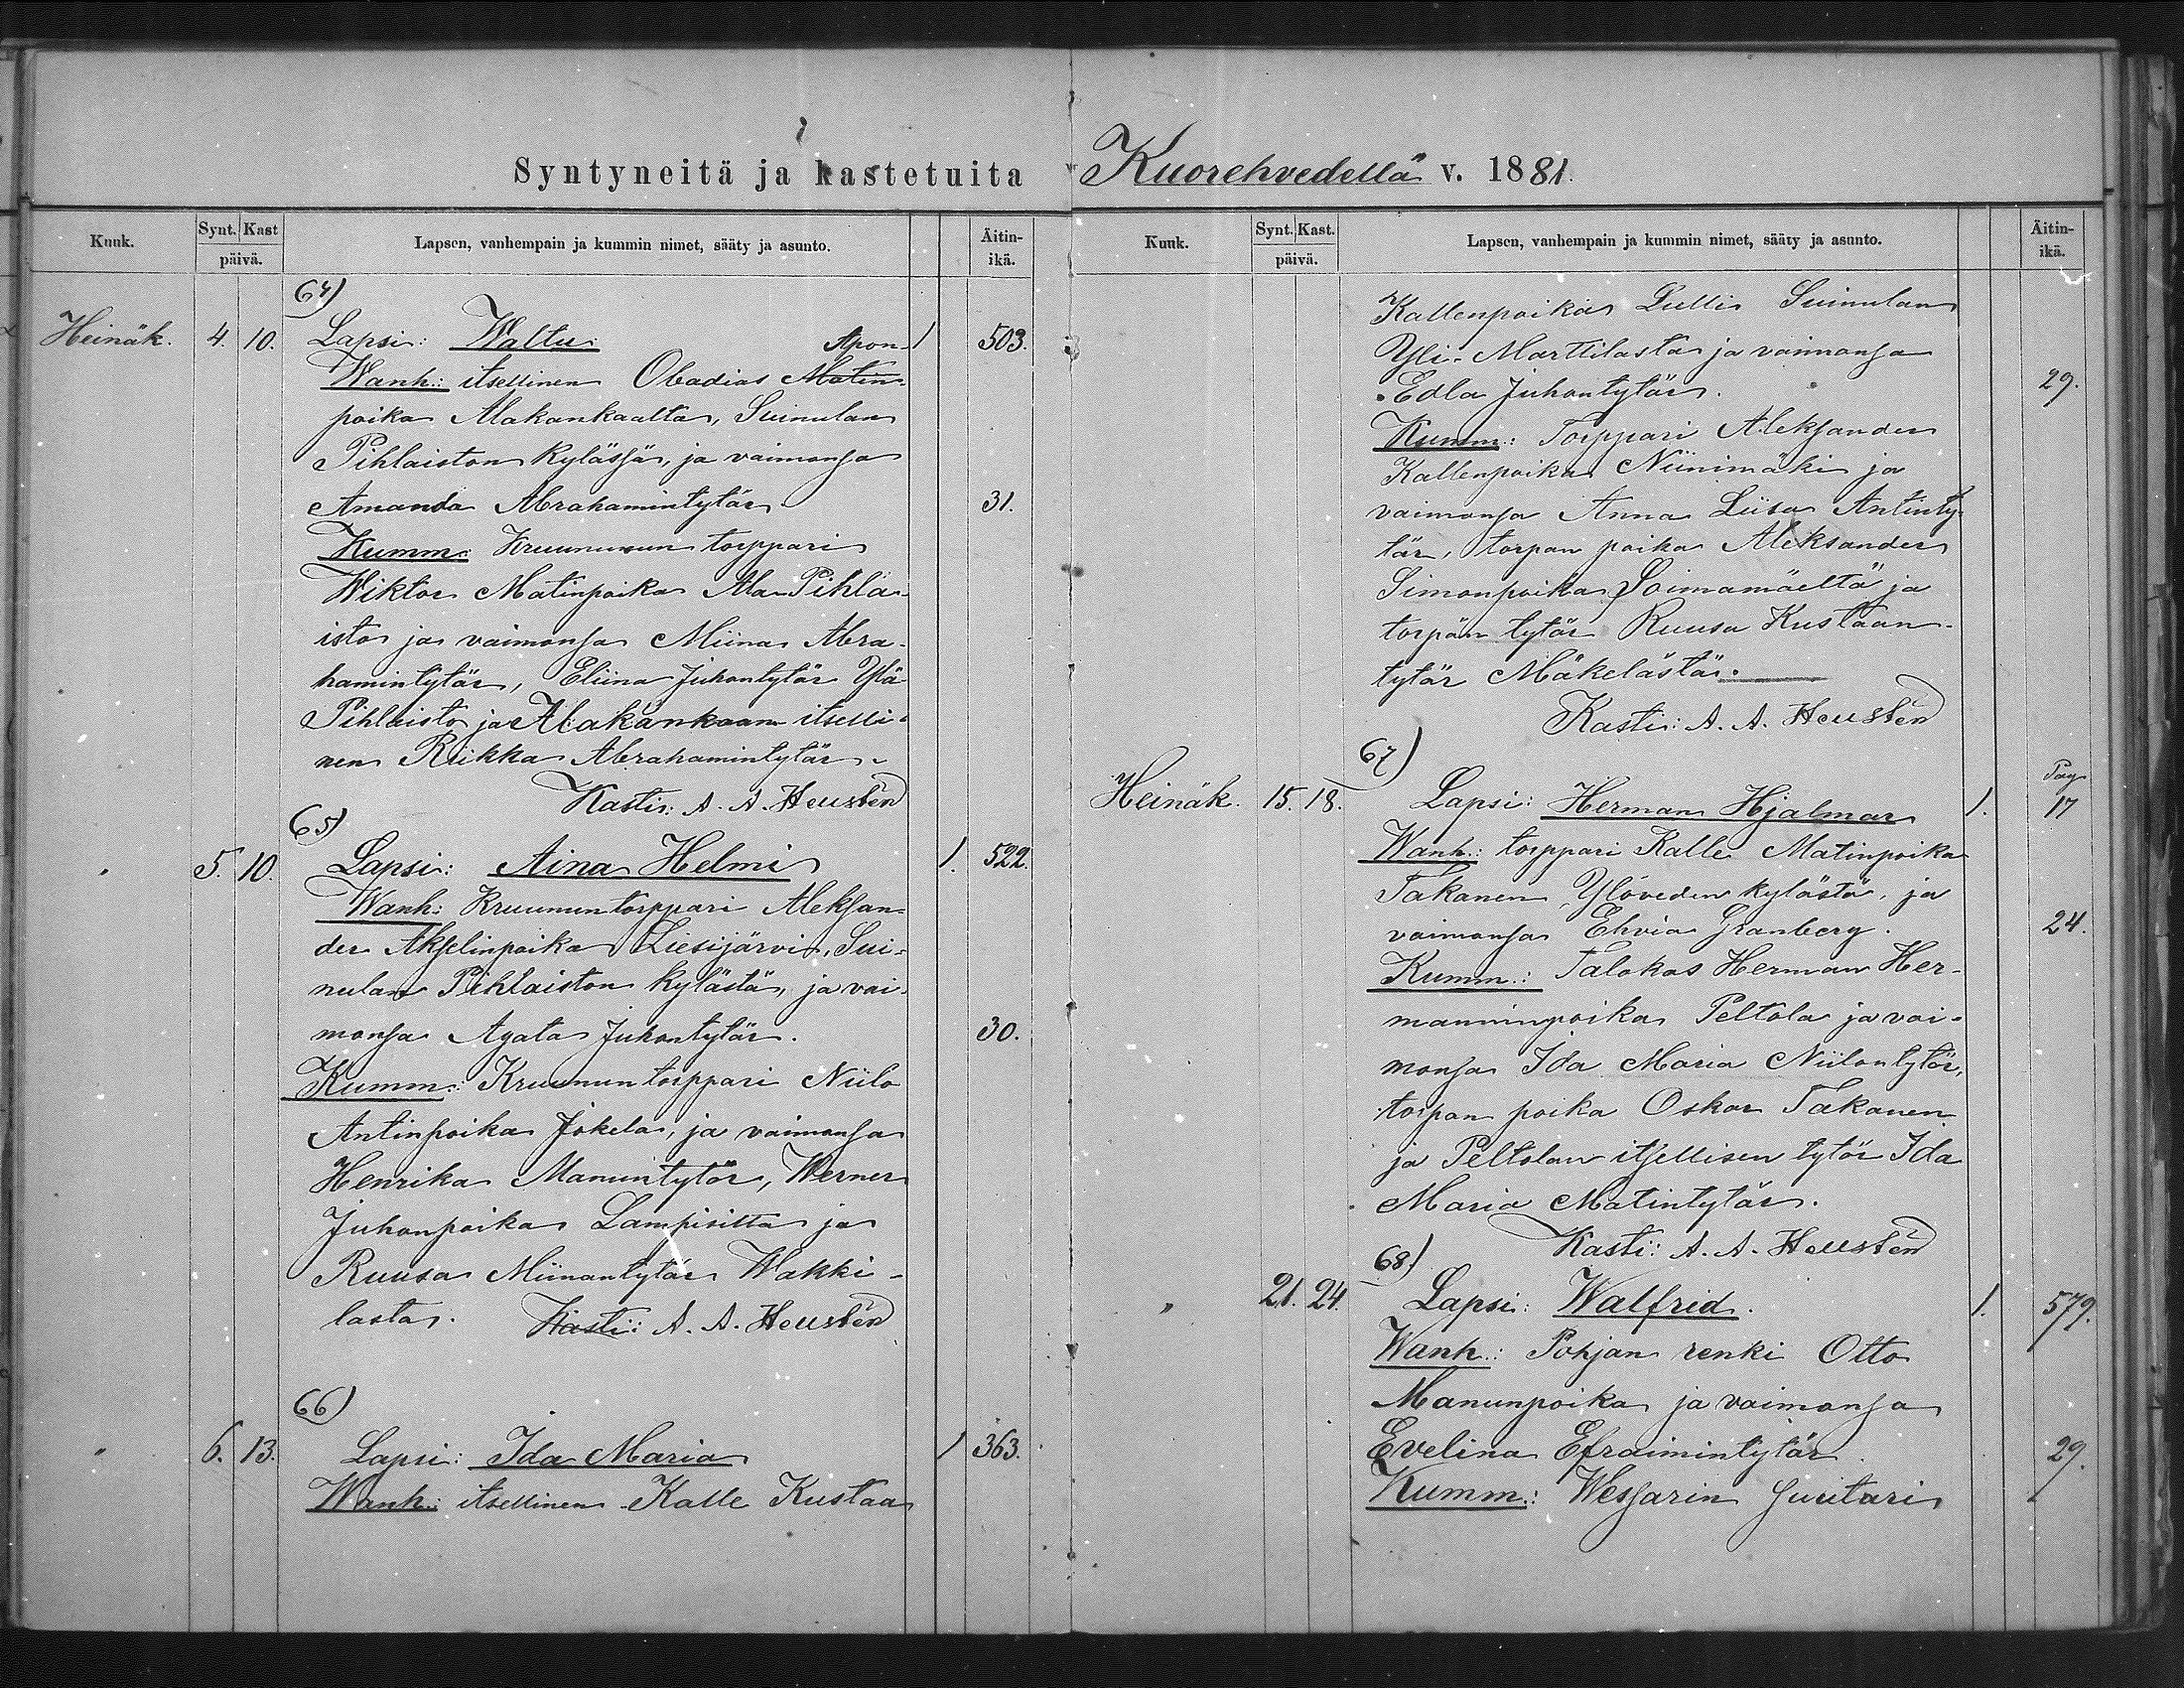 Syntyneitä ja kastetuita
Kuuk.
Synt. Kast
päivä.
Lapsen, vanhempain ja kummin nimet, sääty ja asunto.
Äitin-
ikä.
64)
Heinäk. 4. 10. Lapsi: Waltu Apon- 1 503.
Wanh.: itsellinen Obadias Matin-
poika Alakankaalta, Suinulan
Pihlaiston kylässä, ja vaimonsa
Amanda Abrahamintytär 31.
Kumm: Kruunuun torppari
Wiktor Matinpoika Ala-Pihla-
isto ja vaimonsa Miina Abra-
hamintytär, Eliina Juhontytär Ylä
Pihlaisto ja Alakankaan itselli-
nen Riikka Abrahamintytär.
Kasti: A. A. Heustén
65)
" 5. 10. Lapsi: Aina Helmi 1. 522.
Wanh: Kruunun torppari Aleksan-
der Akselinpoika Liesijärvi, Sui-
nulan Pihlaiston kylästä, ja vai-
monsa Agata Juhontytär. 30.
Kumm: Kruunun torppari Niilo
Antinpoika Jokela, ja vaimonsa
Henrika Manuntytär, Werner
Juhonpoika Lampisilta ja
Ruusa Miinantytär Wakki-
lasta. Kasti: A. A. Heustén
66)
" 6. 13. Lapsi: Ida Maria 1 363.
Wanh.: itsellinen Kalle Kustaa
Kuorehvedellä v. 1881.
Kuuk.
Synt. Kast.
päivä.
Lapsen, vanhempain ja kummin nimet, sääty ja asunto.
Äitin-
ikä.
Kallenpoika Lulli Suinulan
Yli-Marttilasta ja vaimonsa
Edla Juhontytär. 29.
Kumm.: Torppari Aleksander
Kallenpoika Niinimäki ja
vaimonsa Anna Liisa Antinty-
tär, torpan poika Aleksander
Simonpoika Soimamäeltä ja
torpan tytär Ruusa Kustaan-
tytär Mäkelästä.
Kasti: A. A. Heustén
67)
Pag
Heinäk. 15. 18. Lapsi: Herman Hjalmar 1. 17
Wanh.: torppari Kalle Matinpoika
Takanen Ylöveden kylästä, ja
vaimonsa Elvia Granberg. 24.
Kumm.: Talokas Herman Her-
manninpoika Peltola ja vai-
monsa Ida Maria Niilontytär,
torpan poika Oskar Takanen
ja Peltolan itsellisen tytär Ida
Maria Matintytär.
Kasti: A. A. Heustén
68)
" 21. 24. Lapsi: Walfrid. 1. 579.
Wanh.: Pohjan renki Otto
Manunpoika ja vaimonsa
Evelina Efraimintytär. 29.
Kumm.: Wessarin suutari